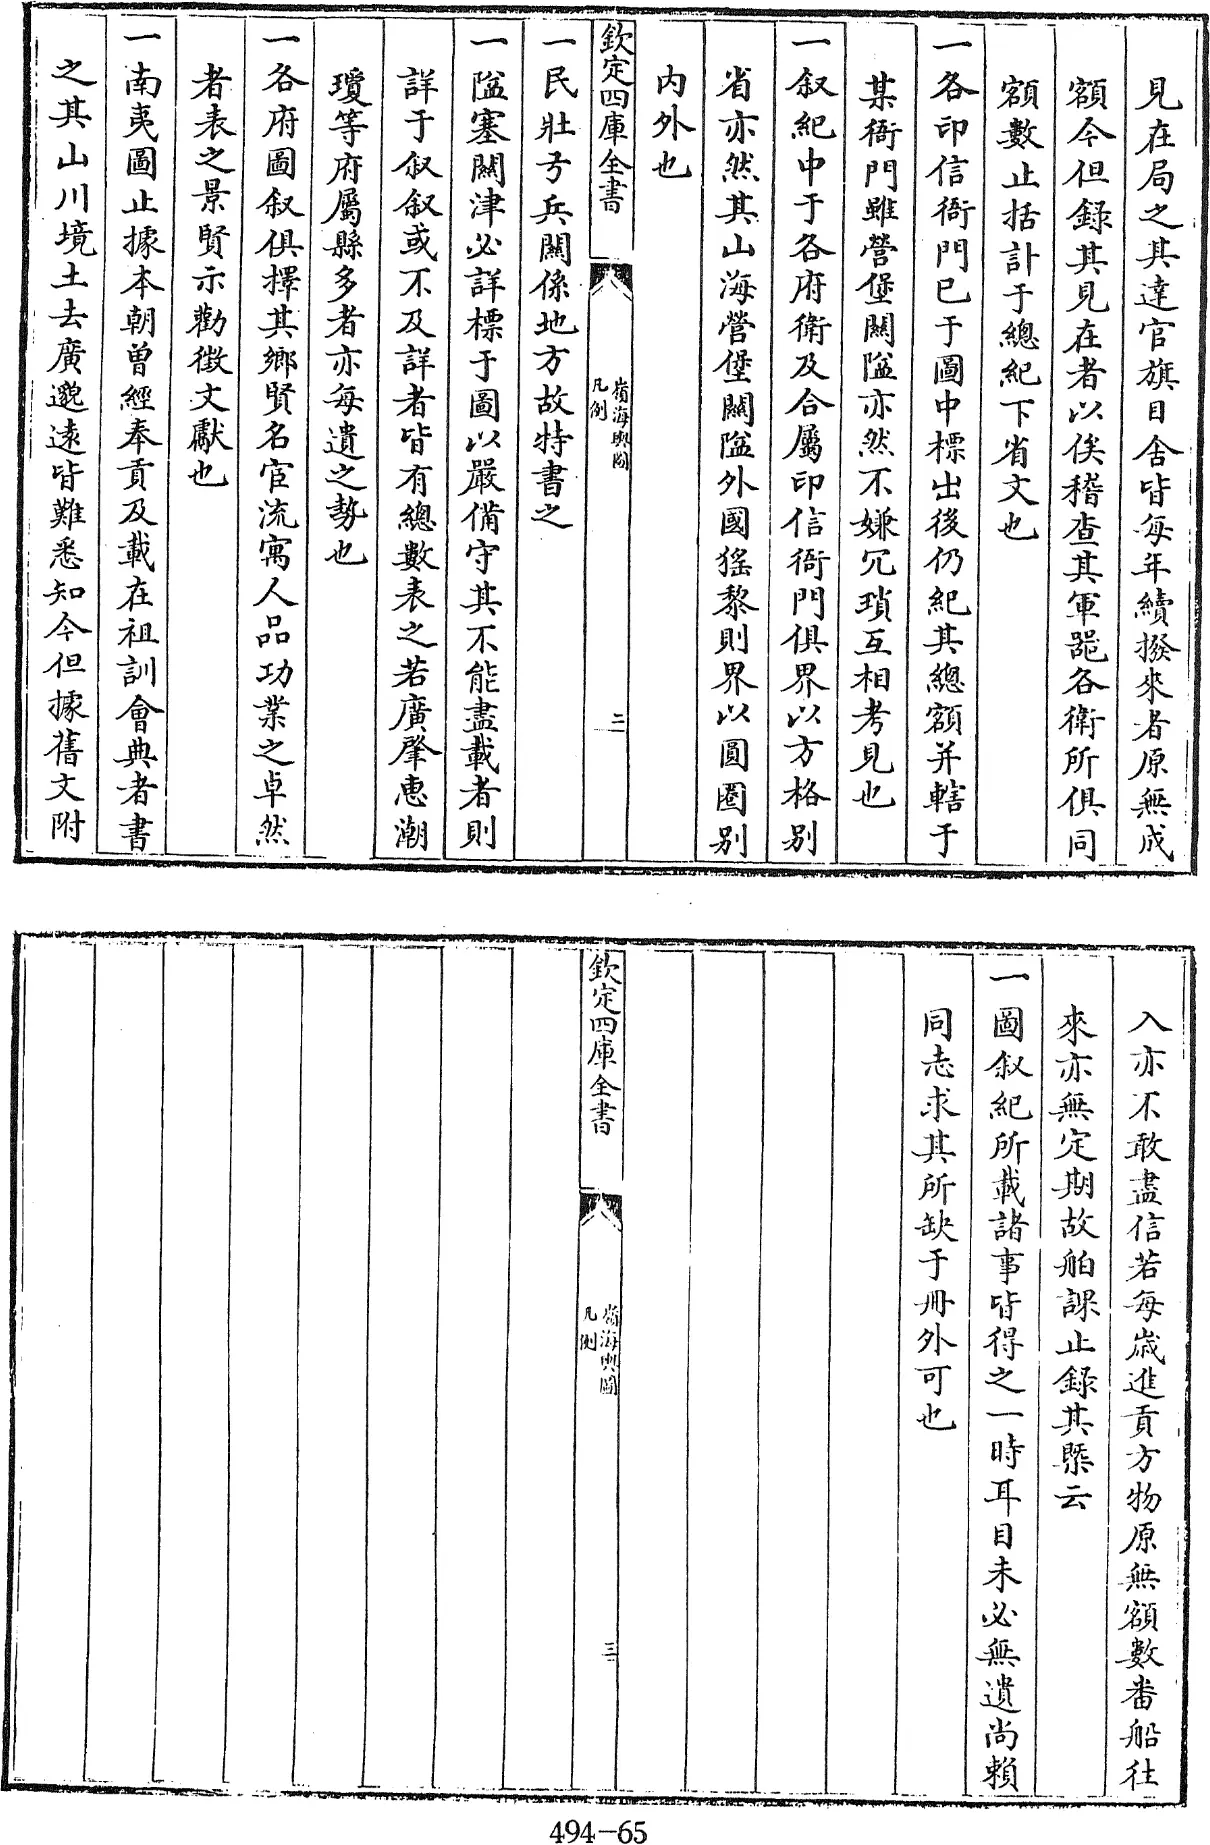 見在局之其達官旗目舍皆每年續撥來者原無成
額今但錄其見在者以俟稽查其軍器各衛所俱同
額數止括計于總紀下省文也
一各印信衙門已于圖中標出後仍紀其總額并轄于
某衙門雖營堡關隘亦然不嫌冗瑣互相考見也
一叙紀中于各府衛及合屬印信衙門俱界以方格别
省亦然其山海營堡關隘外國猺黎則界以圓圈别
内外也
欽定四庫全書
嶺海輿圖
凡例
二
一民壯弓兵關係地方故特書之
一隘塞關津必詳標于圖以嚴備守其不能盡載者則
詳于叙叙或不及詳者皆有總數表之若廣肇惠潮
瓊等府屬縣多者亦每遺之勢也
一各府圖叙俱擇其鄉賢名宦流寓人品功業之卓然
者表之景賢示勸徴文獻也
一南夷圖止據本朝曽經奉貢及載在祖訓會典者書
之其山川境土去廣邈遠皆難悉知今但據舊文附
入亦不敢盡信若每歲進貢方物原無額數畨船往
來亦無定期故舶課止録其槩云
一圖叙紀所載諸事皆得之一時耳目未必無遺尚賴
同志求其所缺于冊外可也
欽定四庫全書
嶺海輿圖
凡例
三
494-65